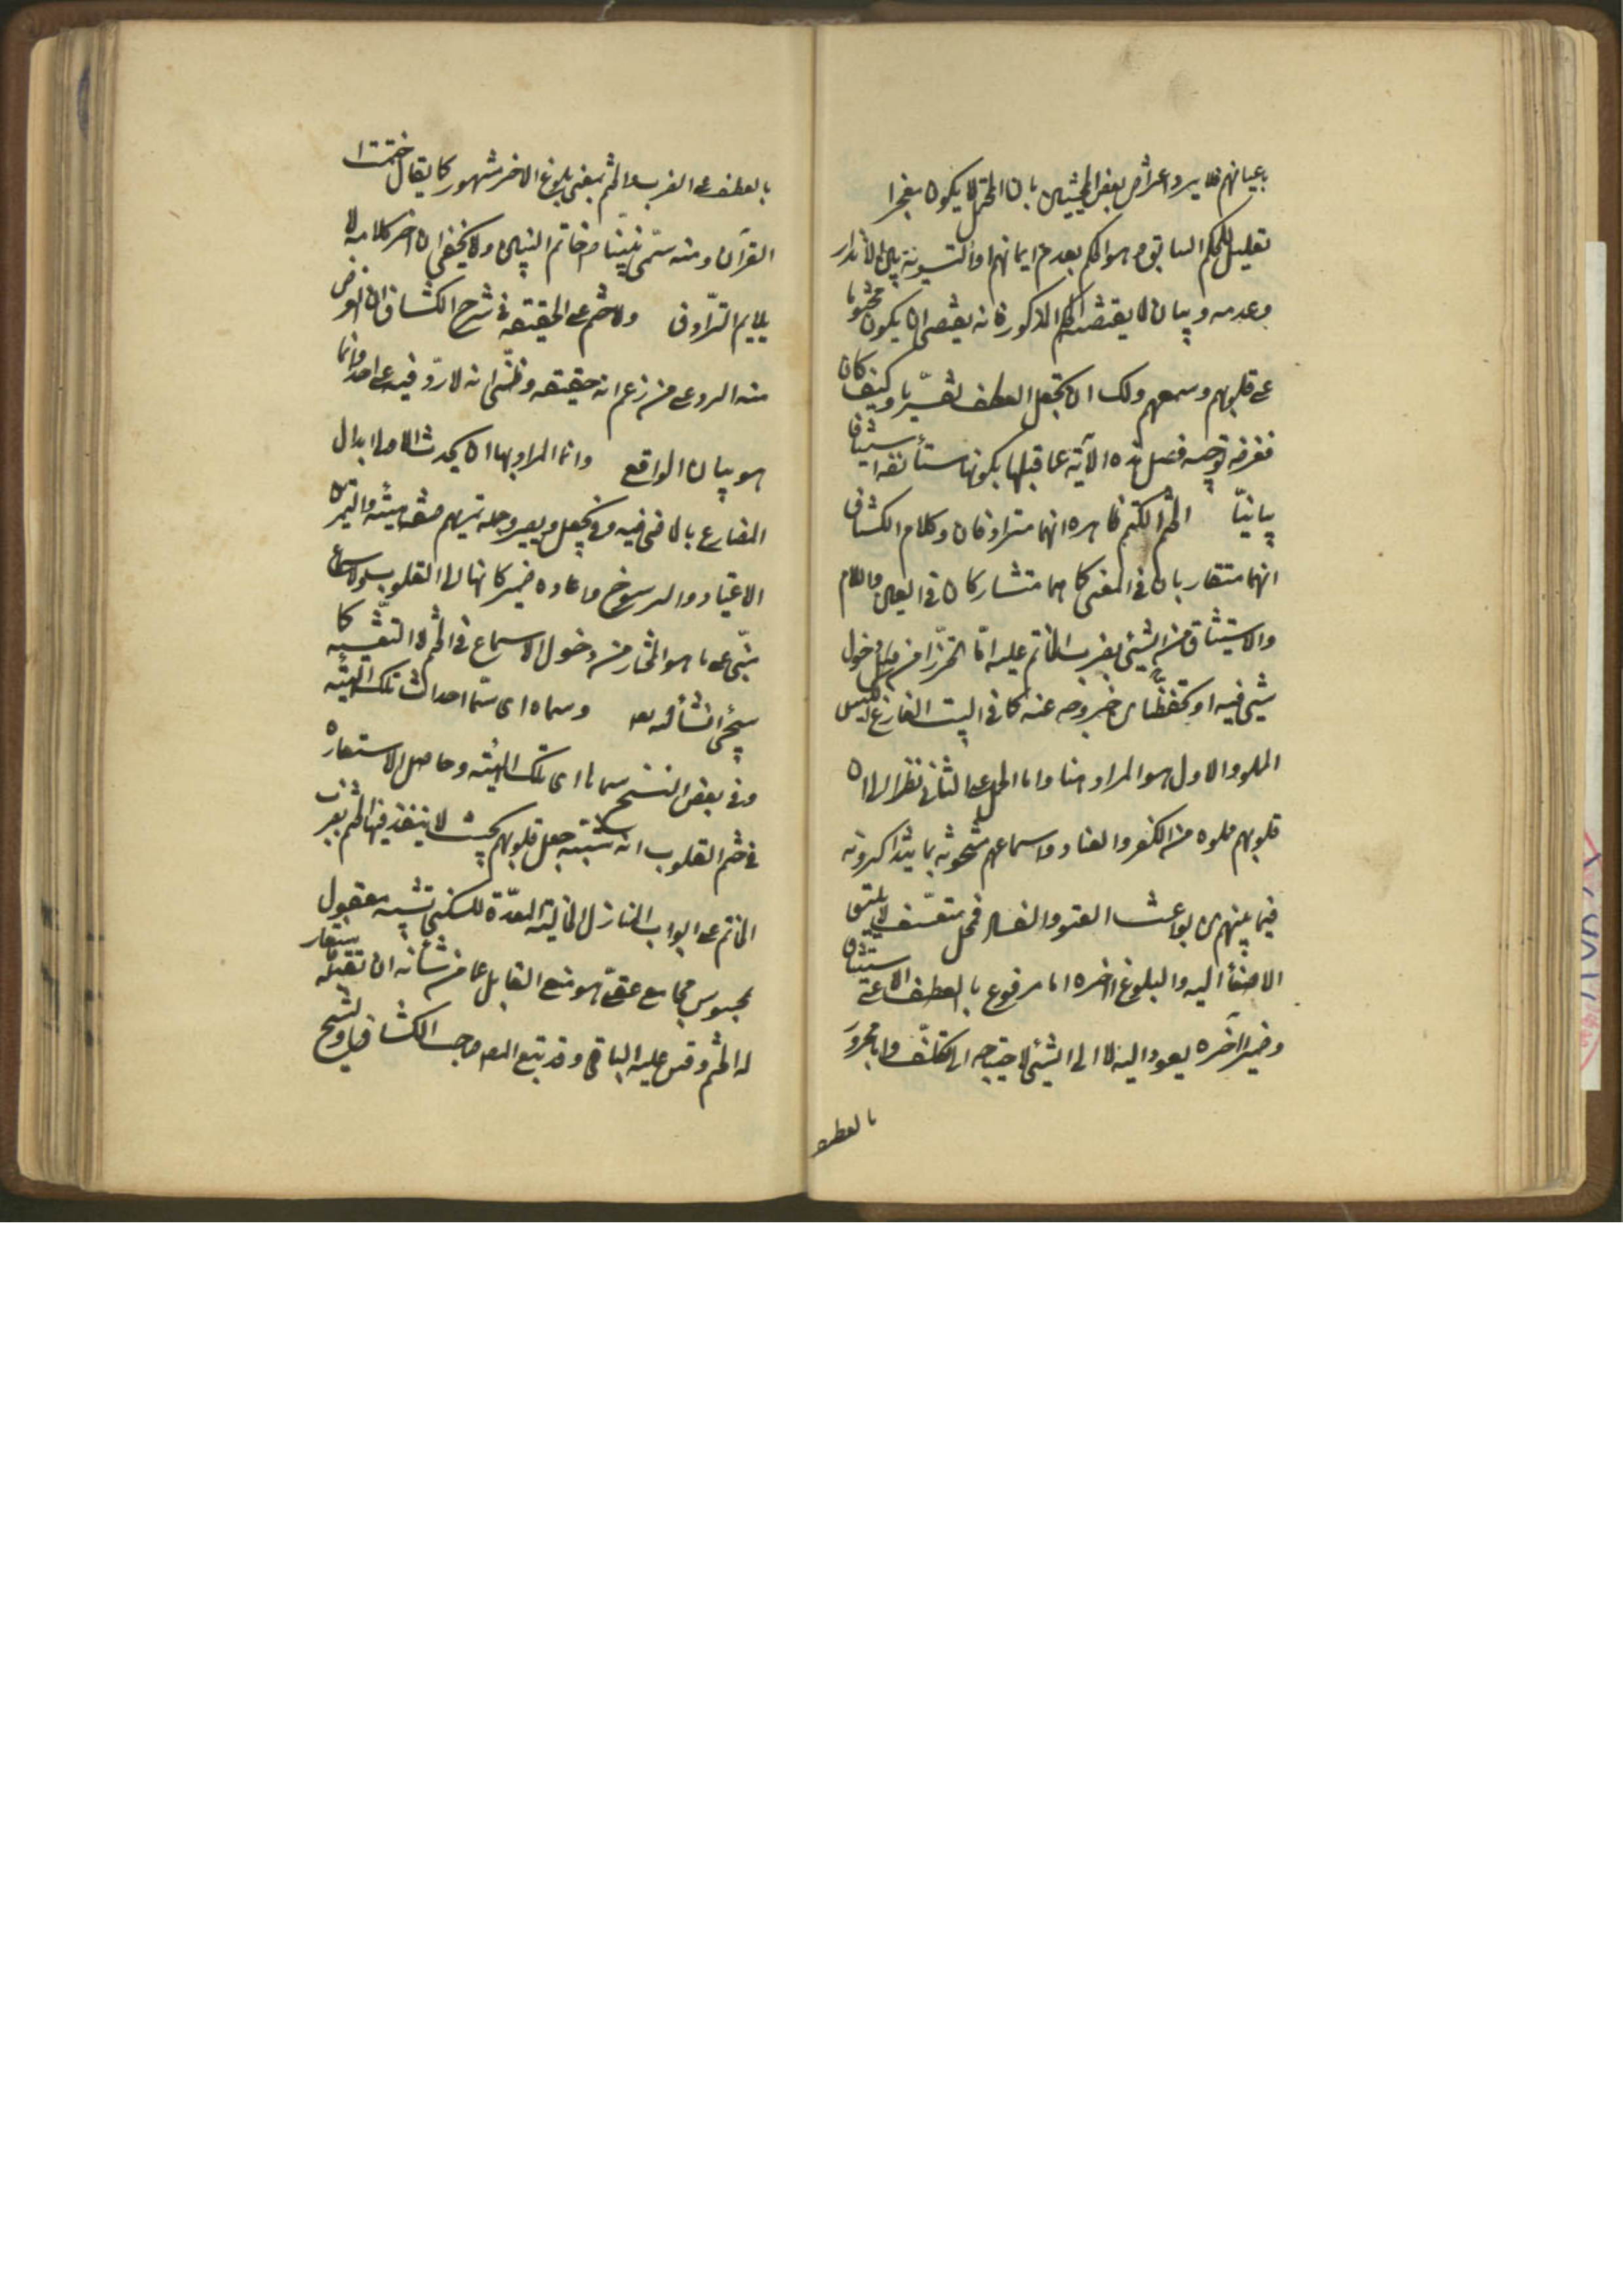 باعيانهم فلا يرد اعتراض بعض المحشيين بان المحتمل لا يكون معجزا
تعليل للحكم السابق وهو الحكم بعدم ايمانهم او التسوية بين الانذار
وعدمه وبيان لا يقتضيه الحكم المذكور فانه يقتضى ان يكون مختوما
على قلوبهم وسمعهم ولك ان تجعل العطف تفسيريا وكيف كان
فغرضه توجيه فصل هذه الآية عما قبلها بكونها مستأنفة استينافا
بيانيّا الختم الكتم ظاهره انهما مترادفان وكلام الكشاف
انهما متقاربان فى المعنى كما هما متشاركان فى العين واللام
والاستيثاق من الشيئ بضرب الخاتم عليه امّا تحرّزا من دخول
شيئ فيه او تحفظّا من خروجه عنه كما فى البيت الفارغ والكيس
المملو والاول هو المراد هنا واما الحمل على الثانى نظرا الى ان
قلوبهم مملوه من الكفر والعناد واسماعهم مشحونة بما يتذاكرونه
فيما بينهم من بواعث العتو والفساد فمحل متعسّف لا يليق
الاصغاء اليه والبلوغ اخره اما مرفوع بالعطف على الاستيثاق
وضمير آخره يعود اليه لا الى الشيئ لاحتياجه الى تكلّف واما مجرور
بالعطف
بالعطف على الضرب والختم بمعنى بلوغ الاخر مشهور كما يقال ختمت
القرآن ومنه سمّى نبيّنا ص خاتم النبيين ولا يخفى ان اخر كلامه لا
يلايم الترّادف ولا ختم على الحقيقة فى شرح الكشاف ان الغرض
منه الرد على من زعم انه حقيقة وظنّى انه لا ردّ فيه على احد وانما
هو بيان الواقع وانما المراد بهما ان يحدث الاصل ابدال
المضارع بالماضى فيه وفى يجعل ويصير وجملة تمرنهم صفة هيئة والتمرن
الاعتياد والرسوخ واعاده ضمير كانها الى القلوب والاسماع
مبنّى على ما هو المختار من دخول الاسماع فى الختم لا التغشيه كما
سيجئ انشأ الله تعه وسماه اى سمّا احداث تلك الهيئة
وفى بعض النسخ سماها اى تلك الهيئة وحاصل الاستعاره
فى ختم القلوب انه شبّه جعل قلوبهم بحيث لا ينفذ فيها الحق بضرب
الخاتم على ابواب المنازل الخالية المعدّة للسكنى تشبيه معقول
بمحسوس بجامع عقلىّ هو منع القابل عما من شأنه ان يقبله فاستعار
له الختم وقس عليه الباقى وقد تبع المصه صاحب الكشاف